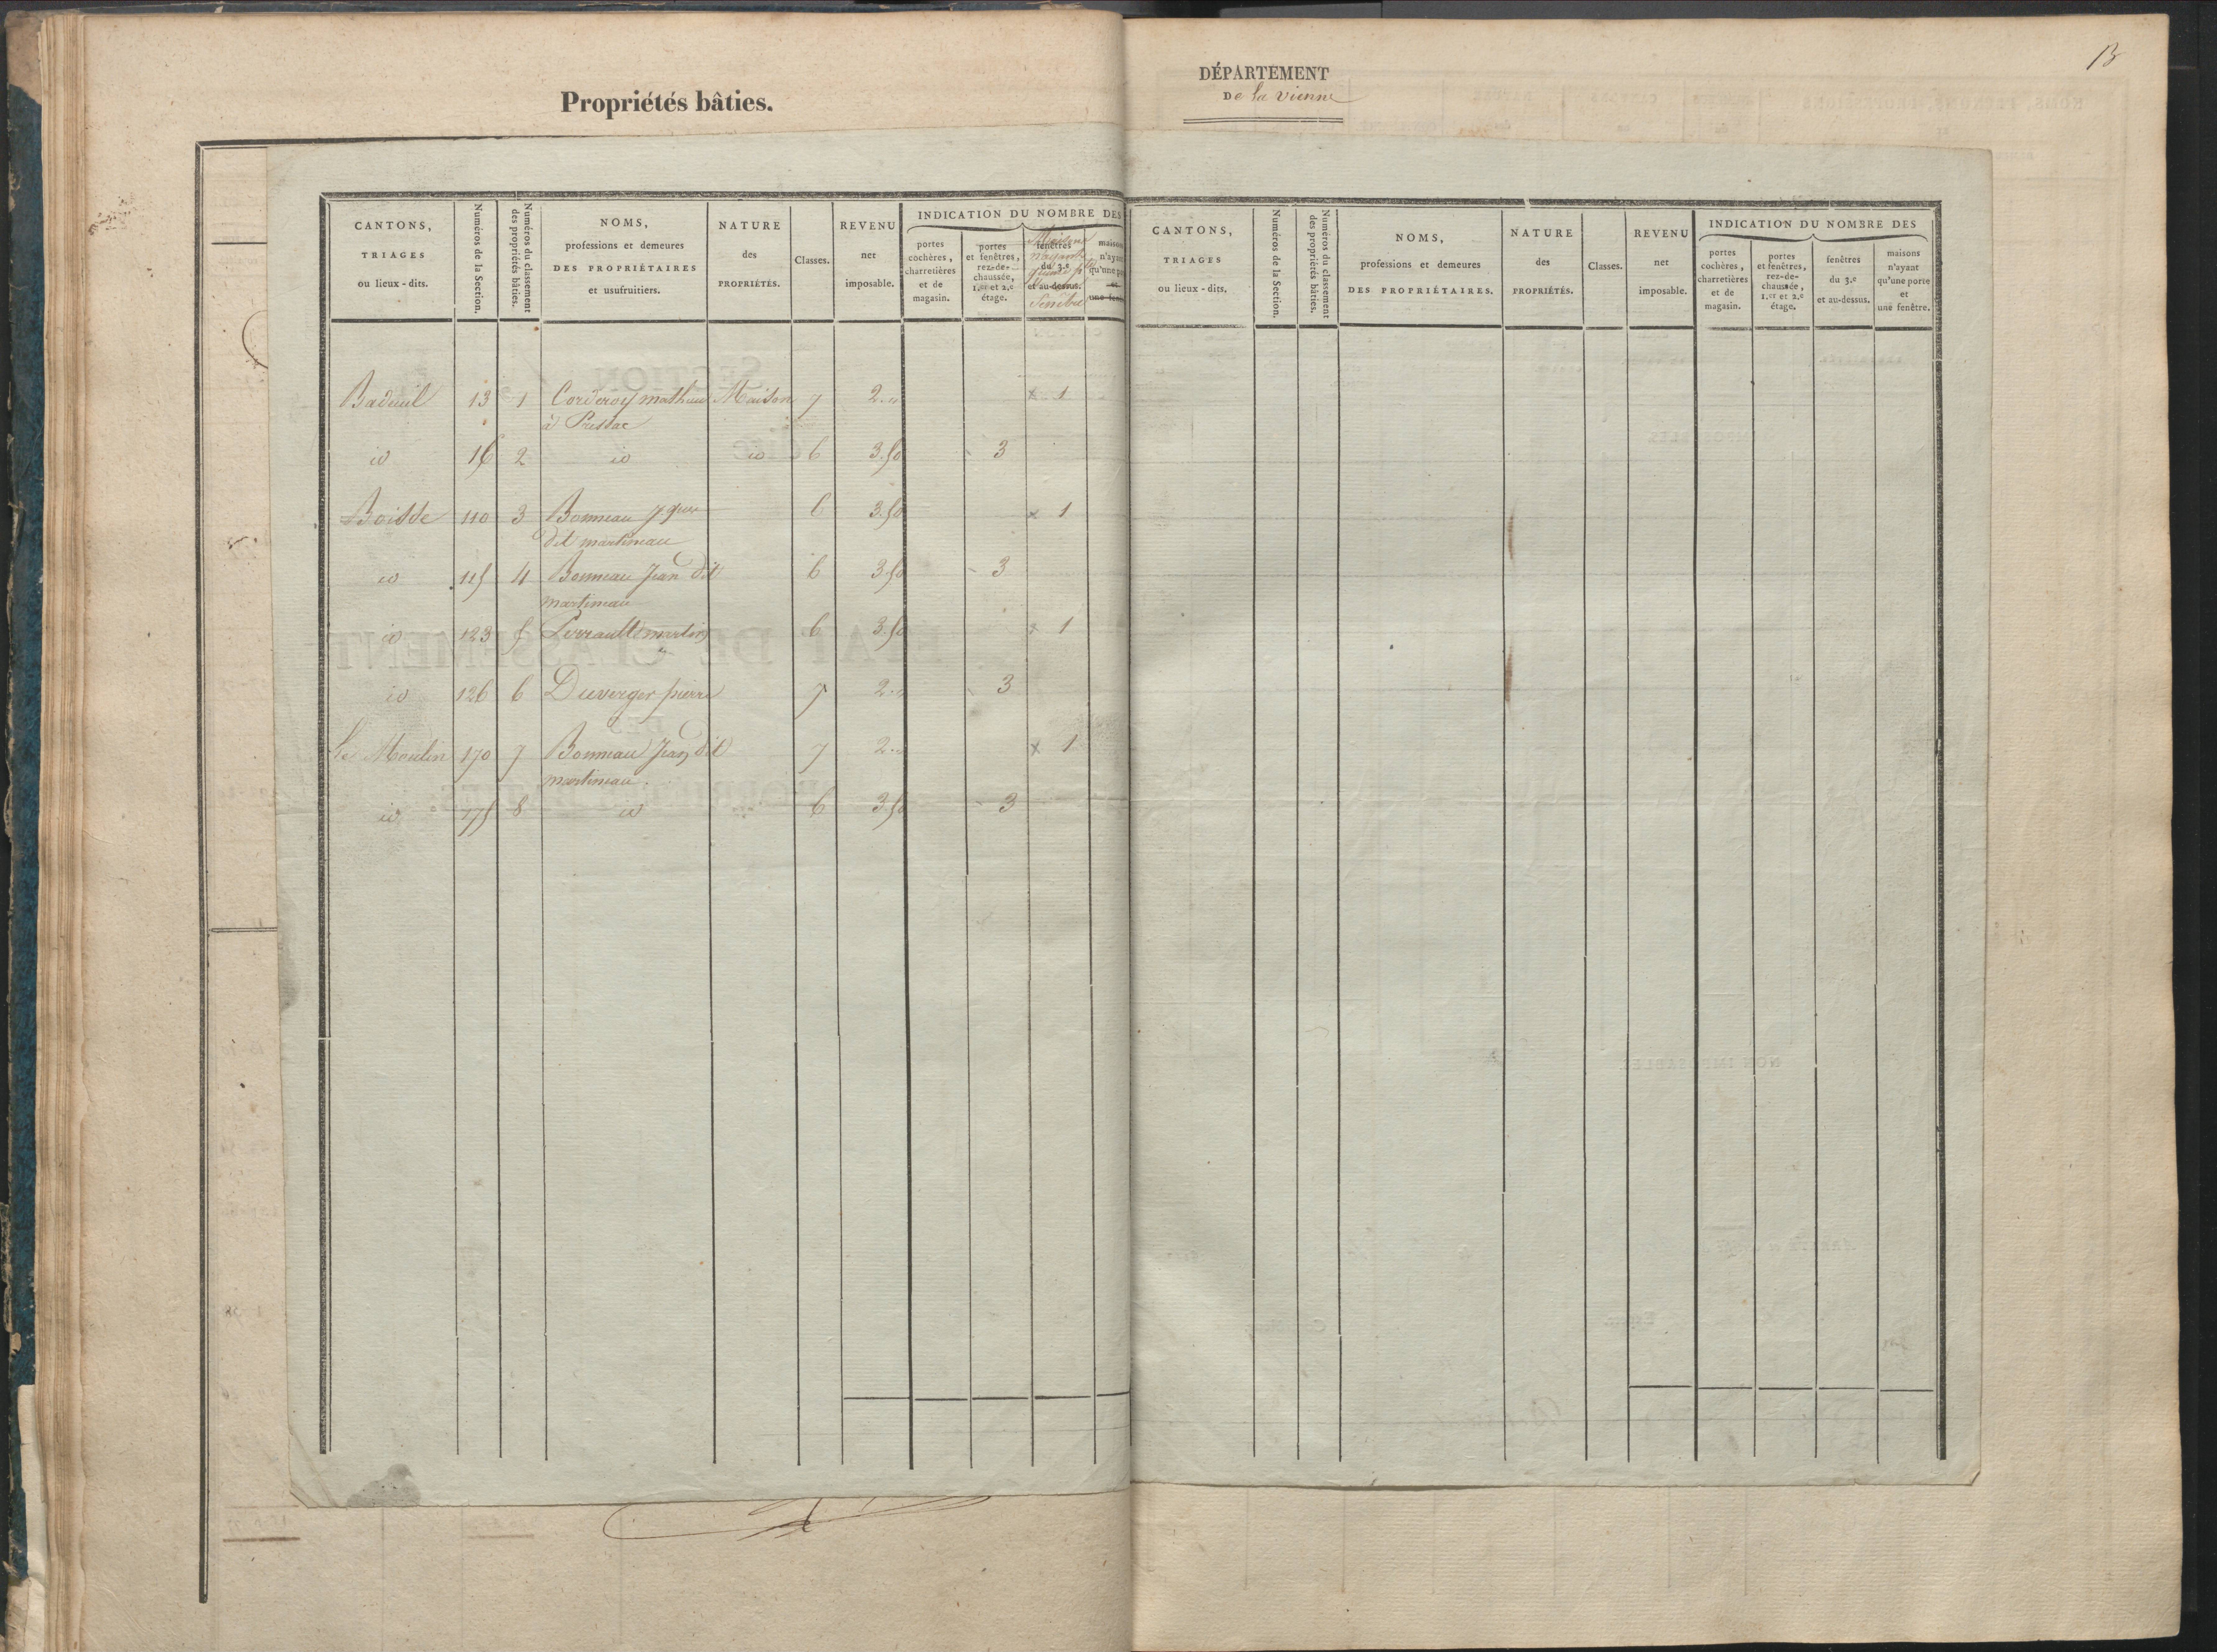 Propriétés bâties.
DÉPARTEMENT
De la Vienne
13
CANTONS, TRIAGES ou lieux-dits.
Numéros de la Section.
Numéros du classement des propriétés bâties.
NOMS, professions et demeures DES PROPRIÉTAIRES et usufruitiers.
NATURE des PROPRIÉTÉS.
Classes.
REVENU net imposable.
INDICATION DU NOMBRE DES
portes cochères, charretières et de magasin.
portes et fenêtres, rez-de-chaussée, 1.er et 2.e étage.
fenêtres du 3.e et au-dessus.
Baduil 13 1 Corderoy mathieu Maison 7 2.〃 x 1
à Pressac
id 16 2 id id 6 3.50 3
Boisde 110 3 Bonneau Jques 6 3.50 x 1
dit martineau
id 115 4 Bonneau Jean dit 6 3.50 - 3
martineau
id 123 5 Perrault martin 6 3.50 x 1
id 126 6 Duverger pierre 7 2.〃 3
Le Moulin 170 7 Bonneau Jean dit 7 2.〃 x 1
martineau.
id 175 8 id 6 3.50 - 3
CANTONS, TRIAGES ou lieux-dits.
Numéros de la Section.
Numéros du classement des propriétés bâties.
NOMS, professions et demeures DES PROPRIÉTAIRES.
NATURE des PROPRIÉTÉS.
Classes.
REVENU net imposable.
INDICATION DU NOMBRE DES
portes cochères, charretières et de magasin.
portes et fenêtres, rez-de-chaussée, 1.er et 2.e étage.
fenêtres du 3.e et au-dessus.
maisons n'ayant qu'une porte et une fenêtre.